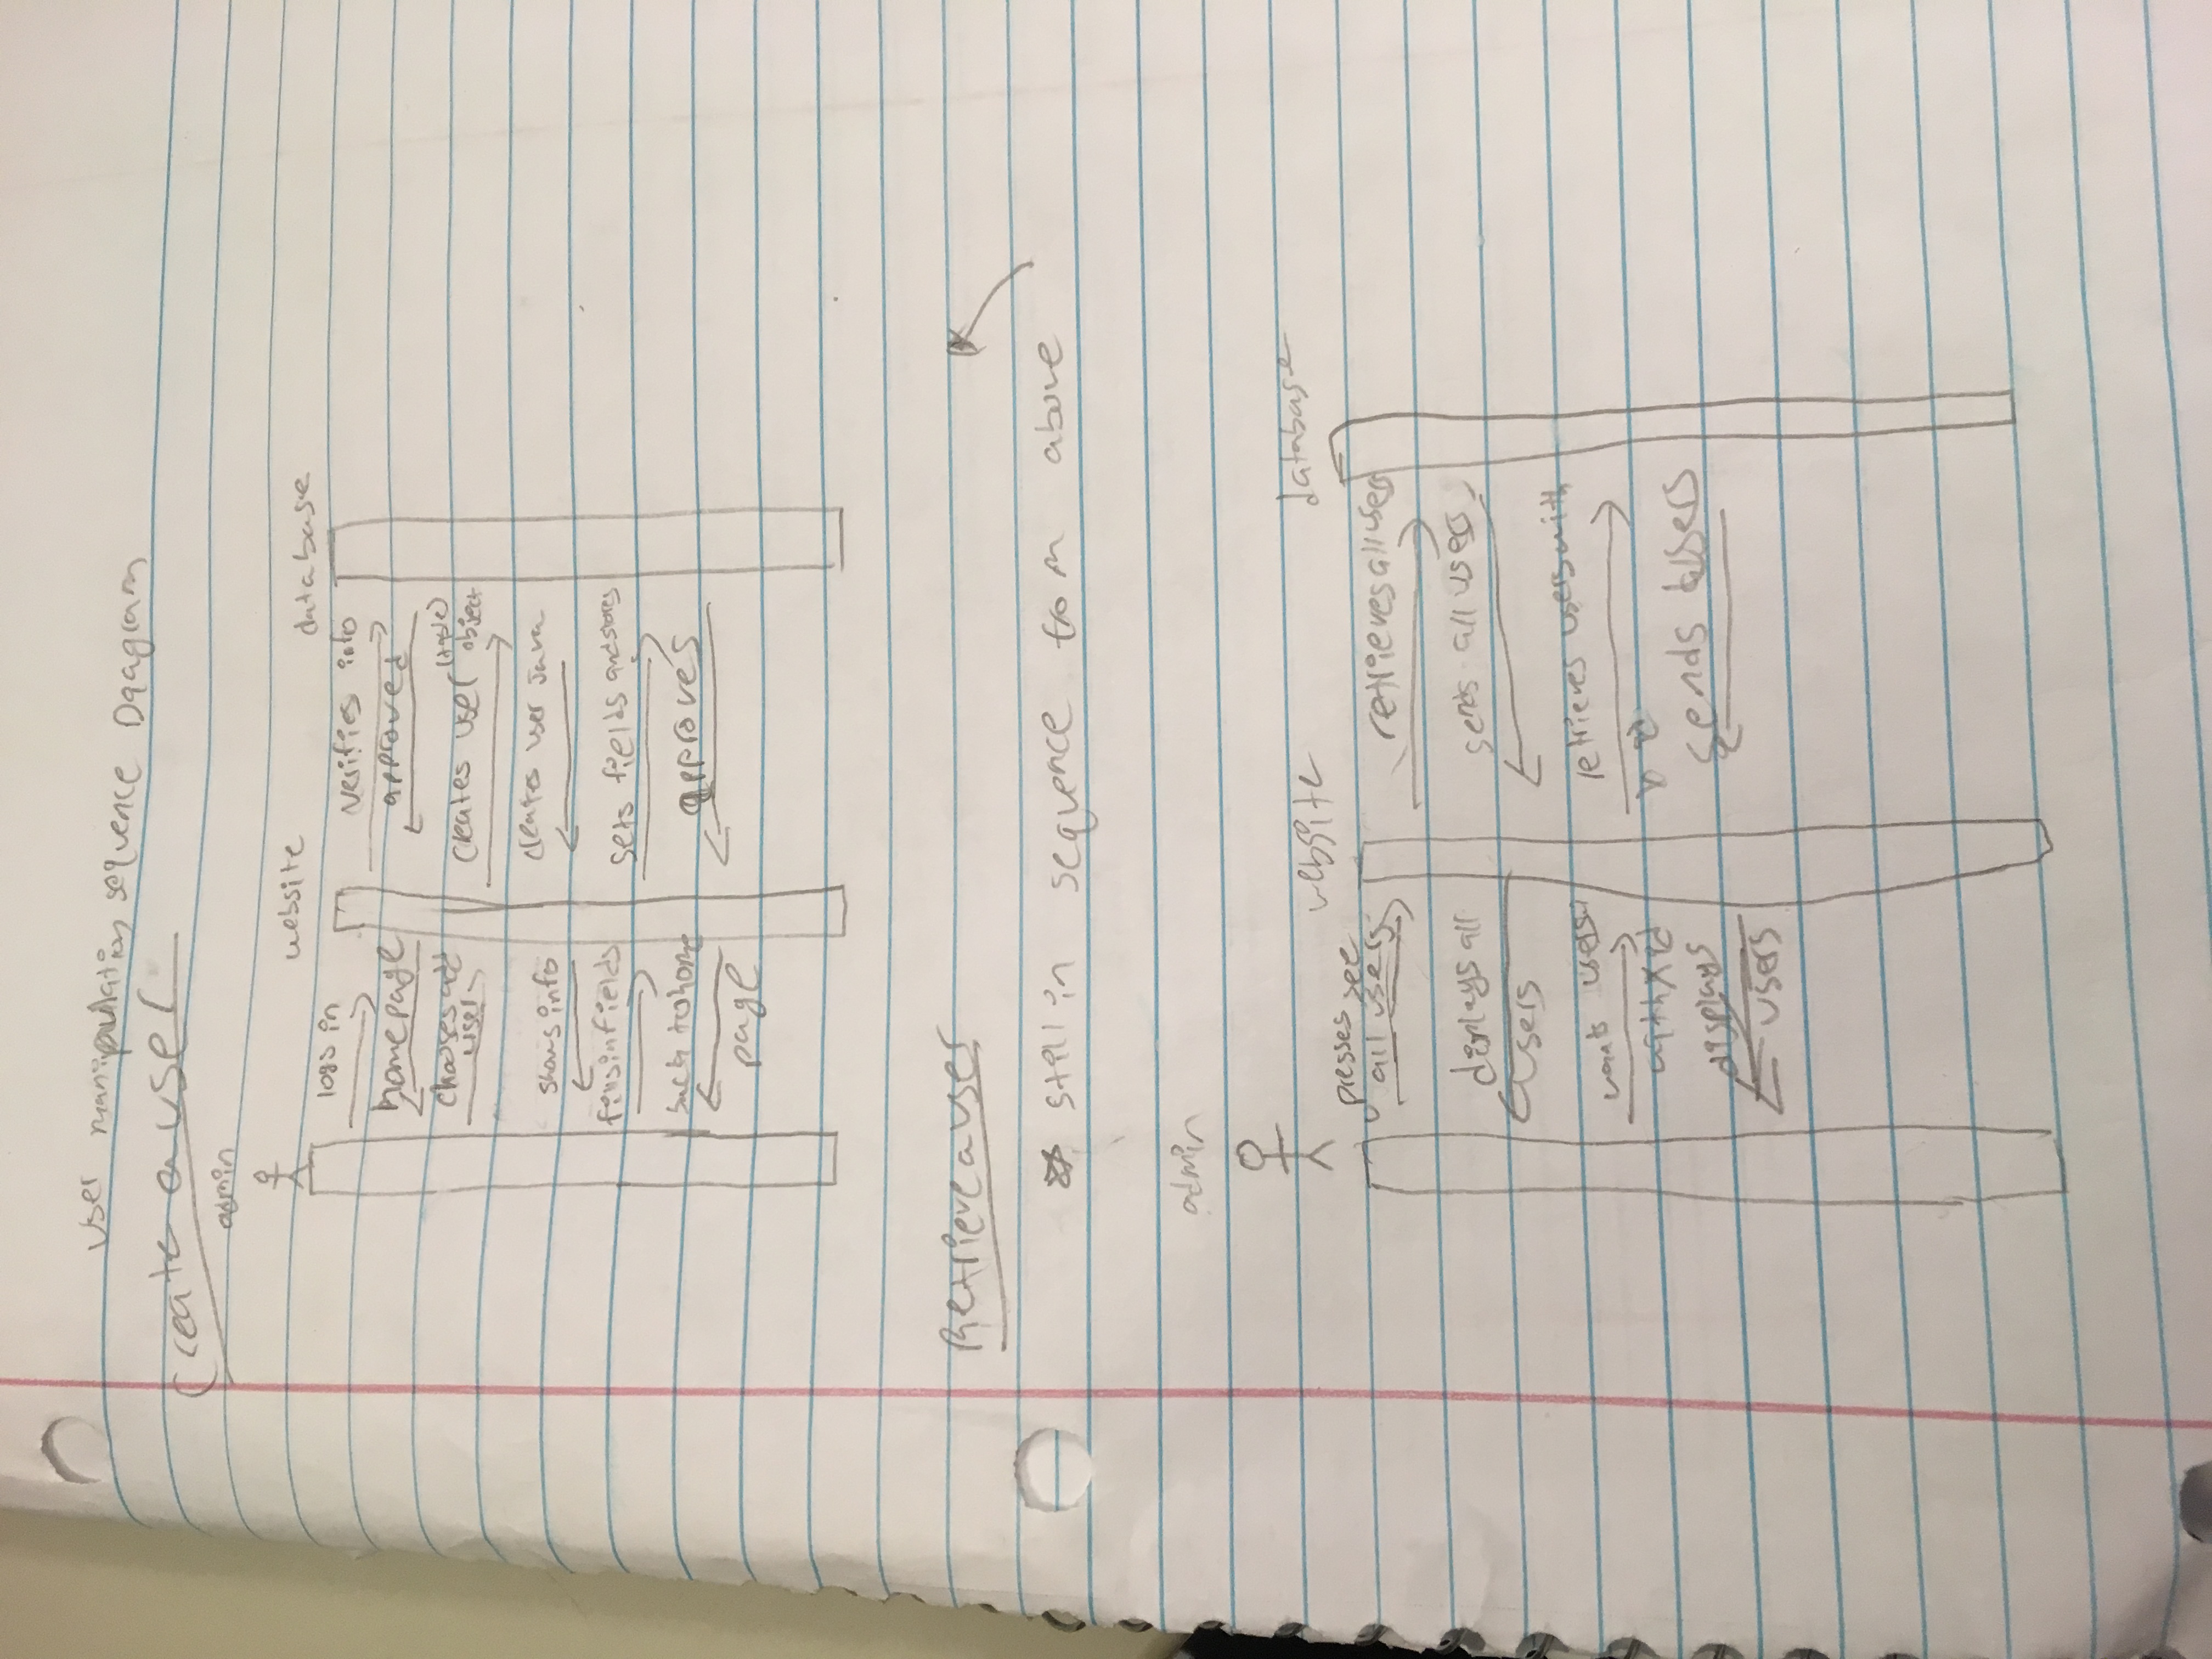 User manipulation sequence Dqagram
Create a user
admin
website
database
logs in
verifies info
homepage
approved
chooses add
user
creates user (table)
object
creates user java
shows info
fills in fields
sets fields and stores
back to home
page
approves
Retrieve a user
still in sequence from above
admin
website
database
presses see
all users
retrieves all users
displays all
users
sends all users
wants users
with id
retrieves users with
id
displays
users
sends users